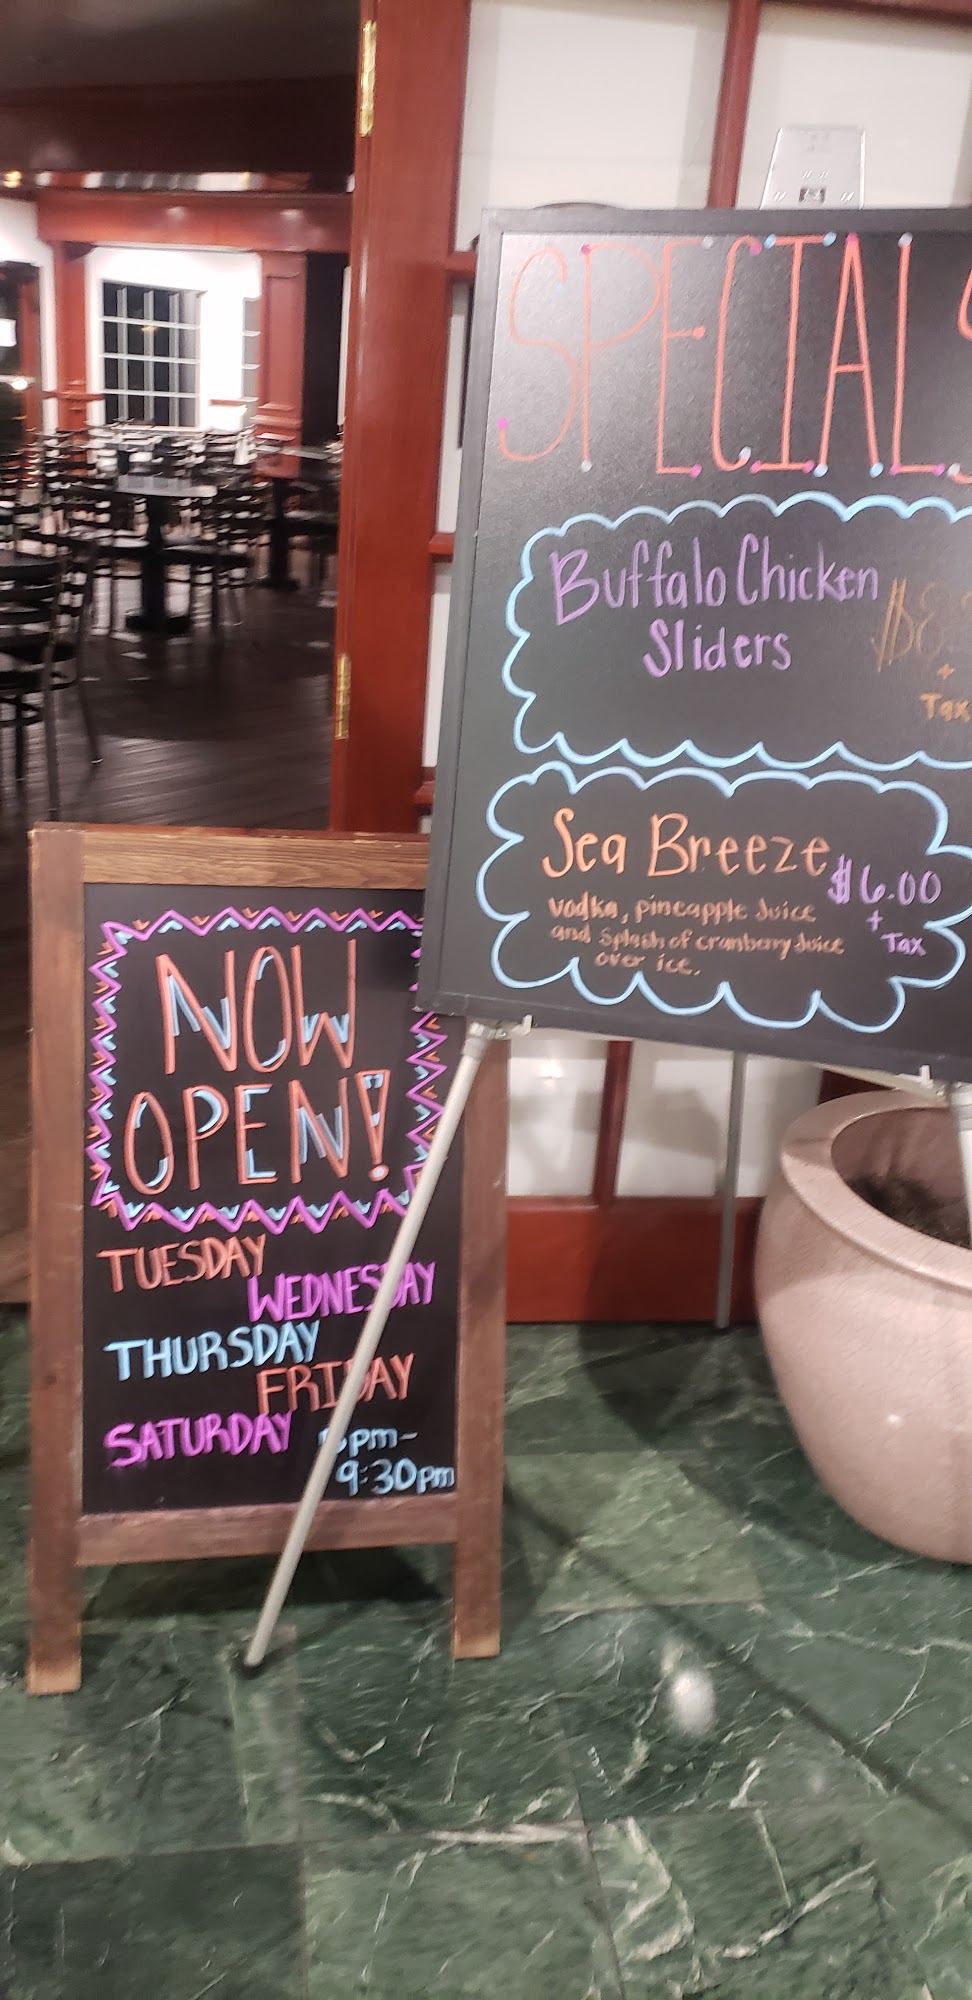 SPECIALS
Buffalo Chicken
Sliders
+
Tax
Sea Breeze
$6.00
+
Tax
vodka, pineapple Juice
and Splash of cranberry Juice
over ice.
NOW
OPEN!
TUESDAY
WEDNESDAY
THURSDAY
FRIDAY
SATURDAY
pm-
9:30pm